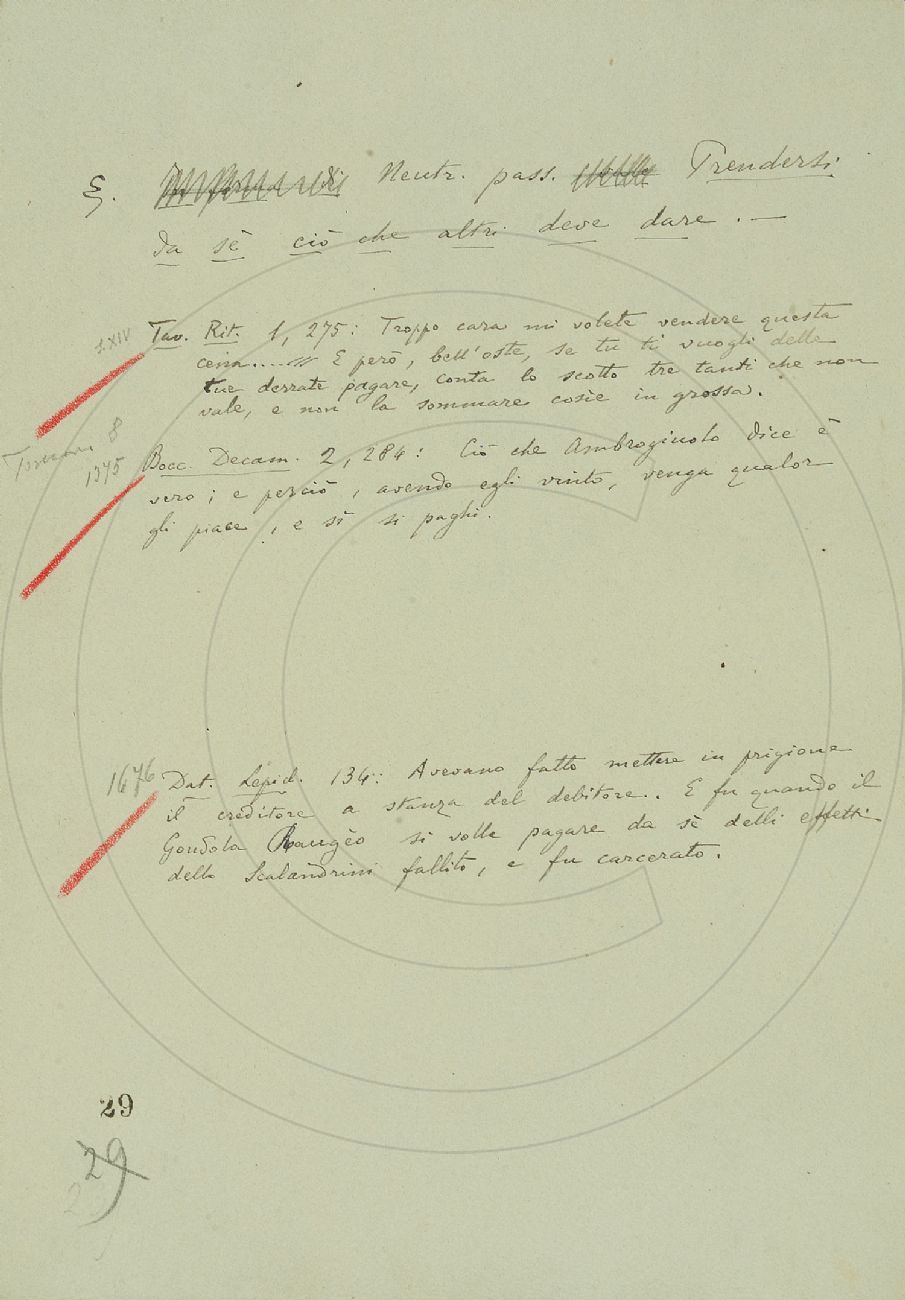 §. Neutr. pass. Prendersi
da sè ciò che altri deve dare. —
s. XIV Tav. Rit. 1, 275: Troppo cara mi volete vendere questa
cena.... E però, bell'oste, se tu ti vuogli delle
tue derrate pagare, conta lo scotto tre tanti che non
vale, e non la sommare cosìe in grossa.
1375 Bocc. Decam. 2, 284: Ciò che Ambrogiuolo dice è
vero; e perciò, avendo egli vinto, venga qualor
gli piace, e sì si paghi.
1676 Dat. Lepid. 134: Avevano fatto mettere in prigione
il creditore a stanza del debitore. E fu quando il
Gondola Raugèo si volle pagare da sè delli effetti
dello Scalandrini fallito, e fu carcerato.
29
29